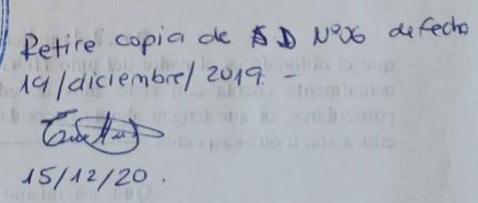 Retire copia de A D Nº06 de fecha
19/diciembre/2019. -
15/12/20.